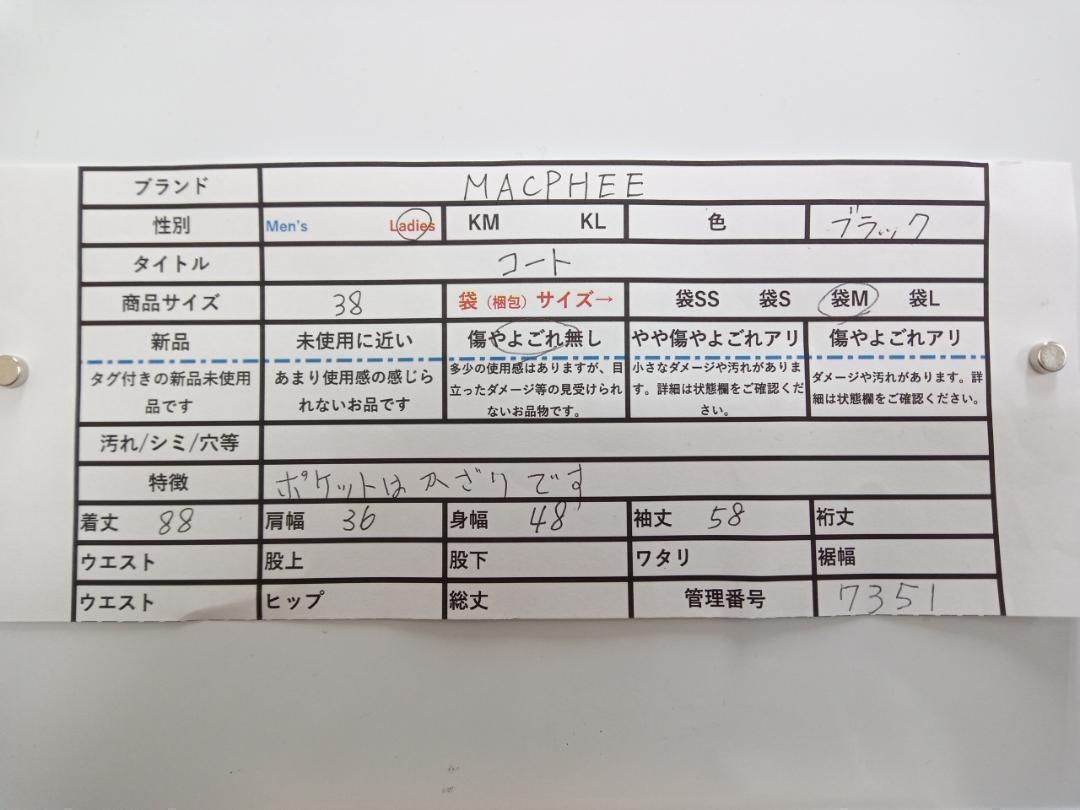 ブランド MACPHEE
性別 Men's Ladies KM KL 色 ブラック
タイトル コート
商品サイズ 38 袋（梱包）サイズ→ 袋SS 袋S 袋M 袋L
新品 未使用に近い 傷やよごれ無し やや傷やよごれアリ 傷やよごれアリ
タグ付きの新品未使用品です あまり使用感の感じられないお品です 多少の使用感はありますが、目立ったダメージ等の見受けられないお品物です。 小さなダメージや汚れがあります。詳細は状態欄をご確認ください。 ダメージや汚れがあります。詳細は状態欄をご確認ください。
汚れ/シミ/穴等
特徴 ポケットはかざりです
着丈 88 肩幅 36 身幅 48 袖丈 58 裄丈
ウエスト 股上 股下 ワタリ 裾幅
ウエスト ヒップ 総丈 管理番号 7351